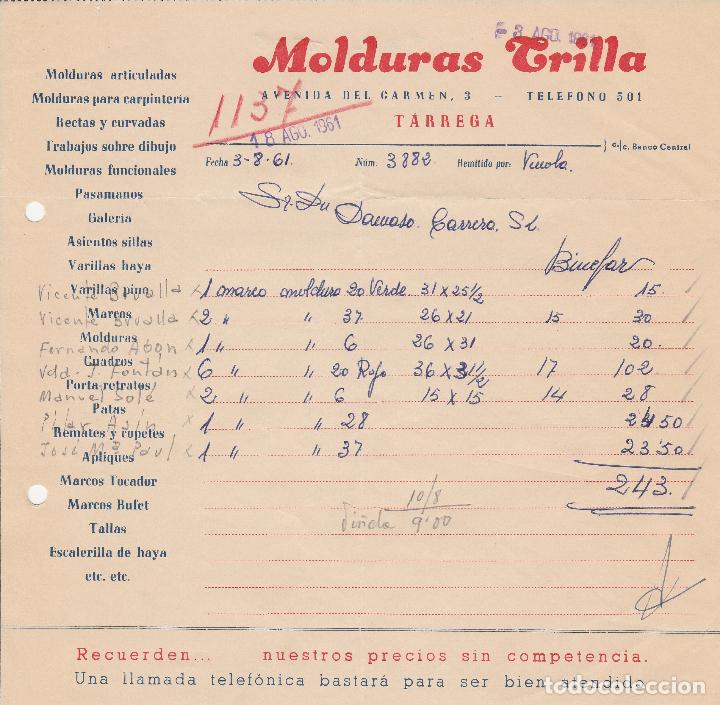 - 3 AGO. 1961
Molduras Trilla
AVENIDA DEL CARMEN, 3 – TELEFONO 501
TÁRREGA
1137
18 AGO. 1961
c/c. Banco Central
Fecha 3-8-61. Núm. 3882 Remitido por:
Sr. Dn Damaso Carrera, Sl.
Binefar
Molduras articuladas
Molduras para carpintería
Rectas y curvadas
Trabajos sobre dibujo
Molduras funcionales
Pasamanos
Galería
Asientos sillas
Varillas haya
Varillas pino
Marcos
Molduras
Cuadros
Porta-retratos
Patas
Remates y copetes
Apliques
Marcos Tocador
Marcos Bufet
Tallas
Escalerilla de haya
etc. etc.
Vicente Brualla x 1 marco moldura 20 Verde 31 x 25 1/2 15
Vicente Brualla x 2 " " 37 26 x 21 15 30
Fernando Abón x 1 " " 6 26 x 31 20.
Vda. J. Fontán x 6 " " 20 Rojo 36 x 31 1/2 17 102
Manuel Solé x 2 " " 6 15 x 15 14 28
Pilar x 1 " " 28 24'50
José Mª Paul x 1 " " 37 23'50
243.
10/8
9'00
Recuerden... nuestros precios sin competencia.
Una llamada telefónica bastará para ser bien atendido
todocoleccion.net